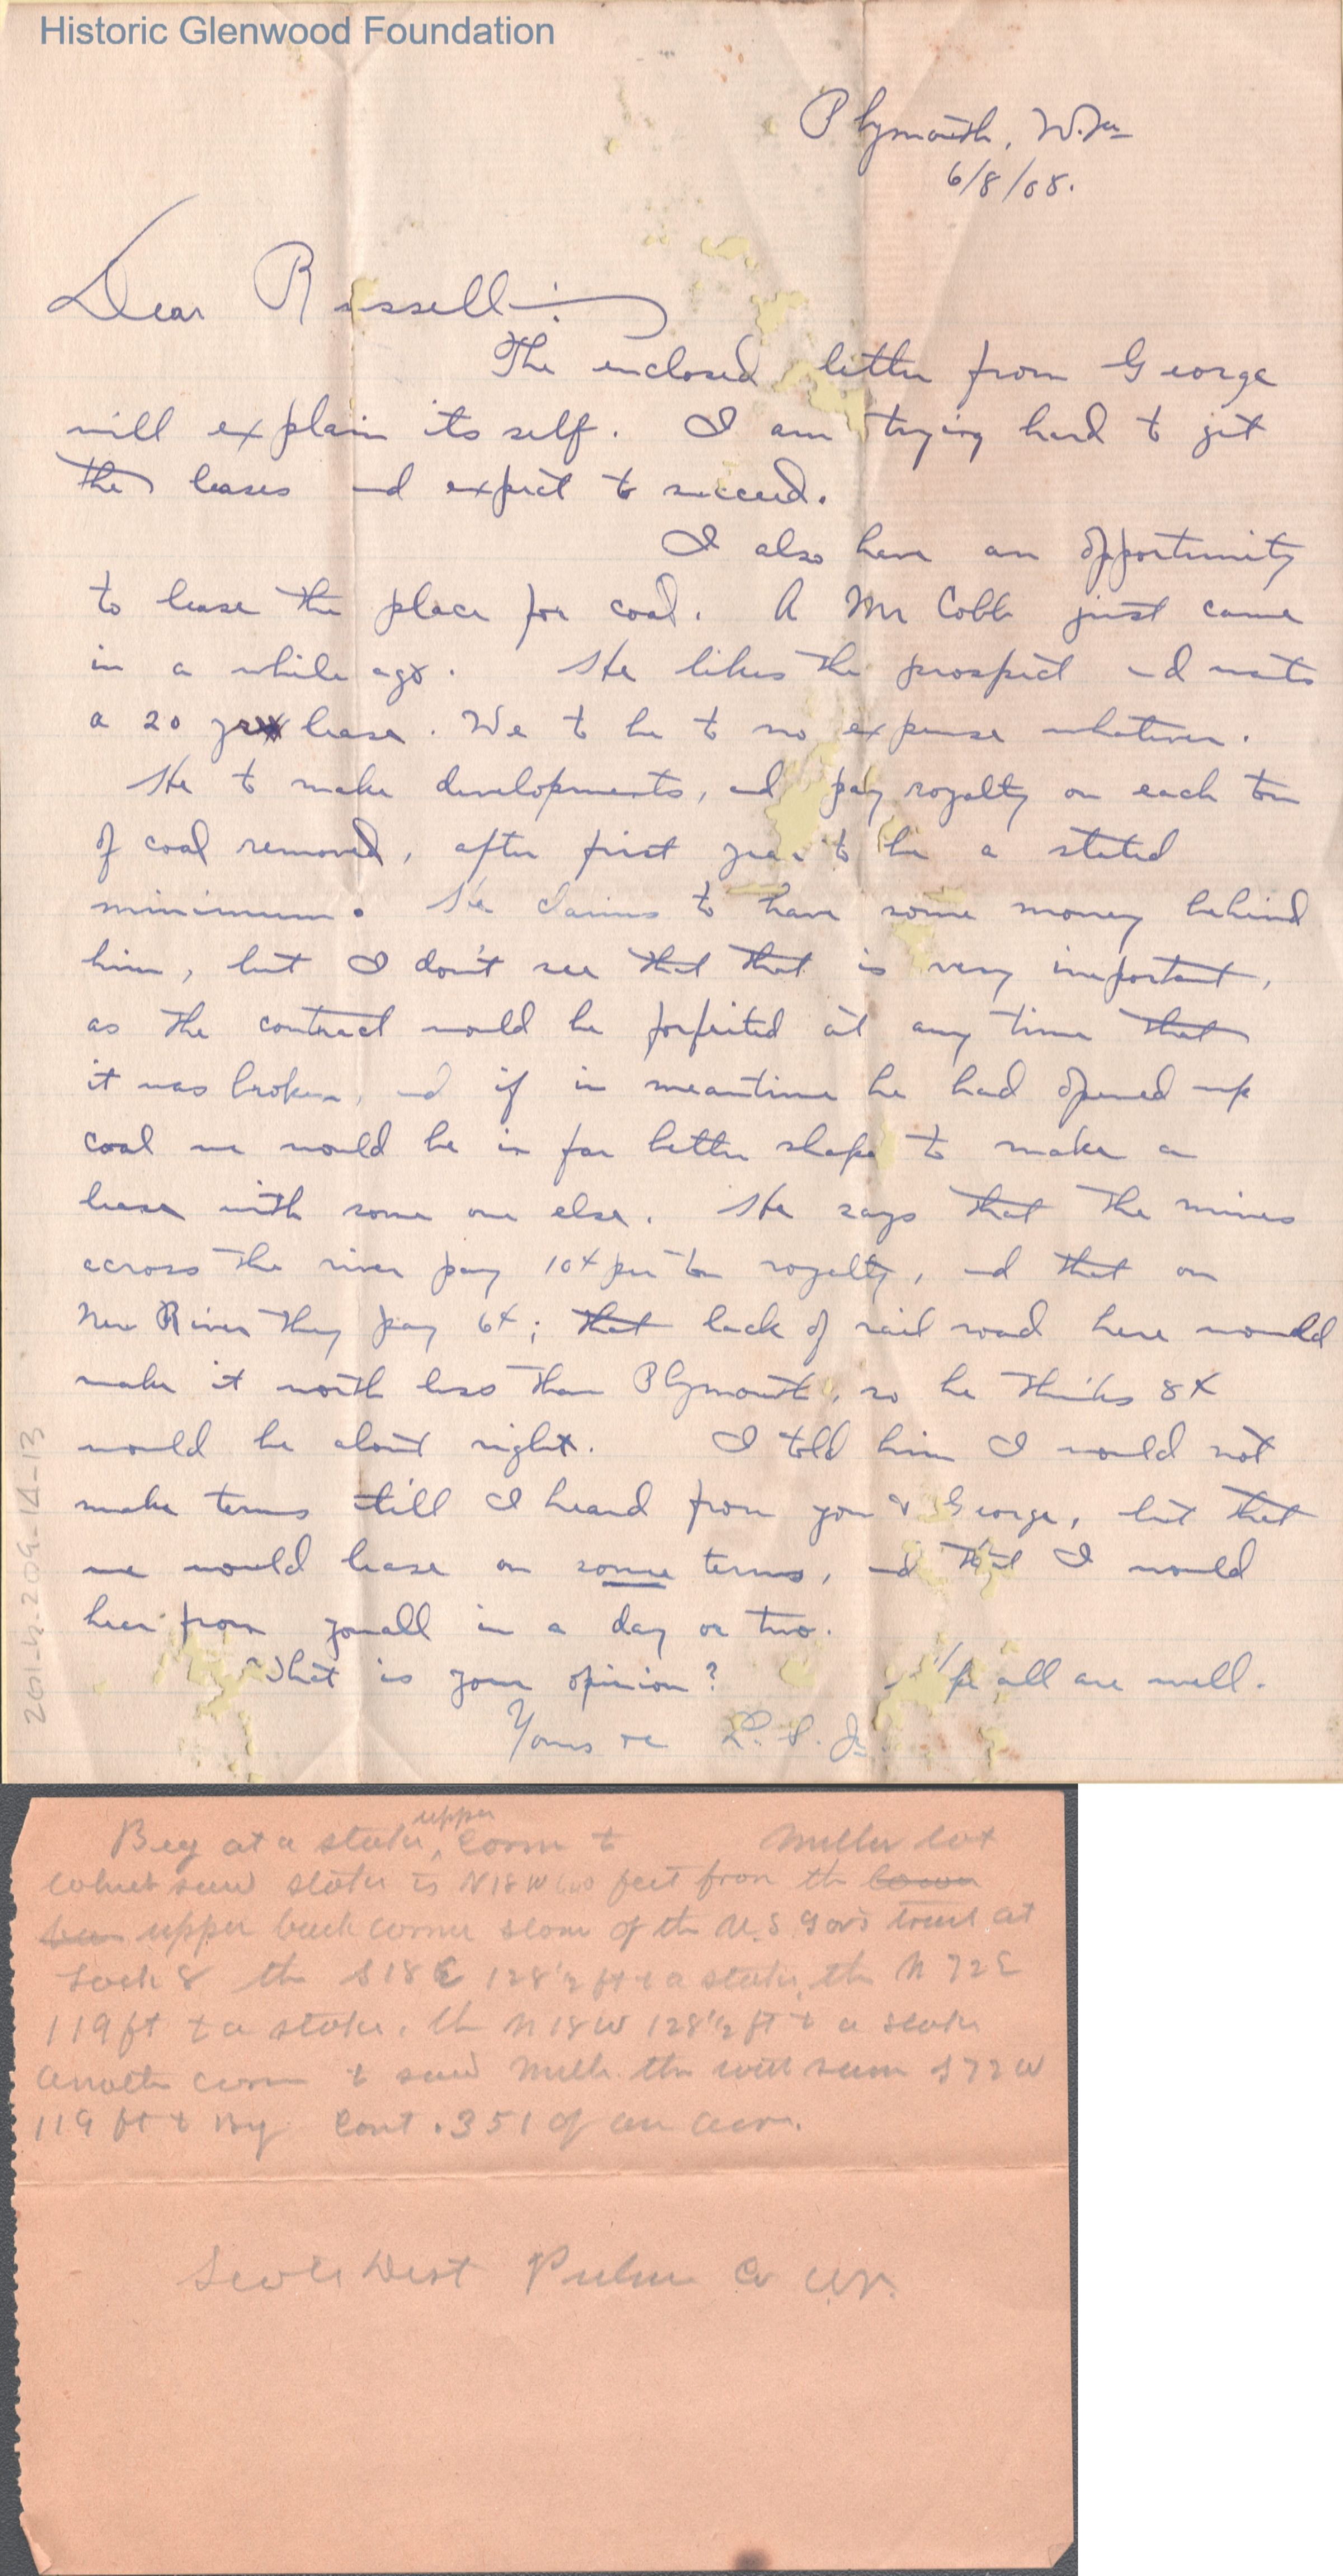 Historic Glenwood Foundation
Plymouth, W.Va
6/8/08.
Dear Russell:
The enclosed letter from George
will explain its self. I am trying hard to get
the leases and expect to succeed.
I also have an opportunity
to lease the place for coal. A Mr Cobb just came
in a while ago. He likes the prospect and wants
a 20 yr lease. We to be to no expense whatever.
He to make developments, and pay royalty on each ton
of coal removed, after first year to be a stated
minimum. He claims to have some money behind
him, but I don't see that that is very important,
as the contract would be forfeited at any time that
it was broken, and if in meantime he had opened up
coal we would be in far better shape to make a
lease with some one else. He says that the mines
across the river pay 10¢ per ton royalty, and that on
New River they pay 6¢; that lack of rail road here would
make it worth less than Plymouth, so he thinks 8¢
would be about right. I told him I would not
make terms till I heard from you & George, but that
we would lease on some terms, and that I would
hear from youall in a day or two.
What is your opinion? We all are well.
Yours
261-4-209-14-13
Beg at a stake, upper corner to Miller lot
which said stake is N18W feet from the lower
upper back corner stone of the U.S. Gov't tract at
Lock 8 th S18E 128 1/2 ft to a stake, th N72E
119 ft to a stake, th N18W 128 1/2 ft to a stake
another corner to said th with same S72W
119 ft to Beg Cont .351 of an acre.
Dist Putnam Co W.V.